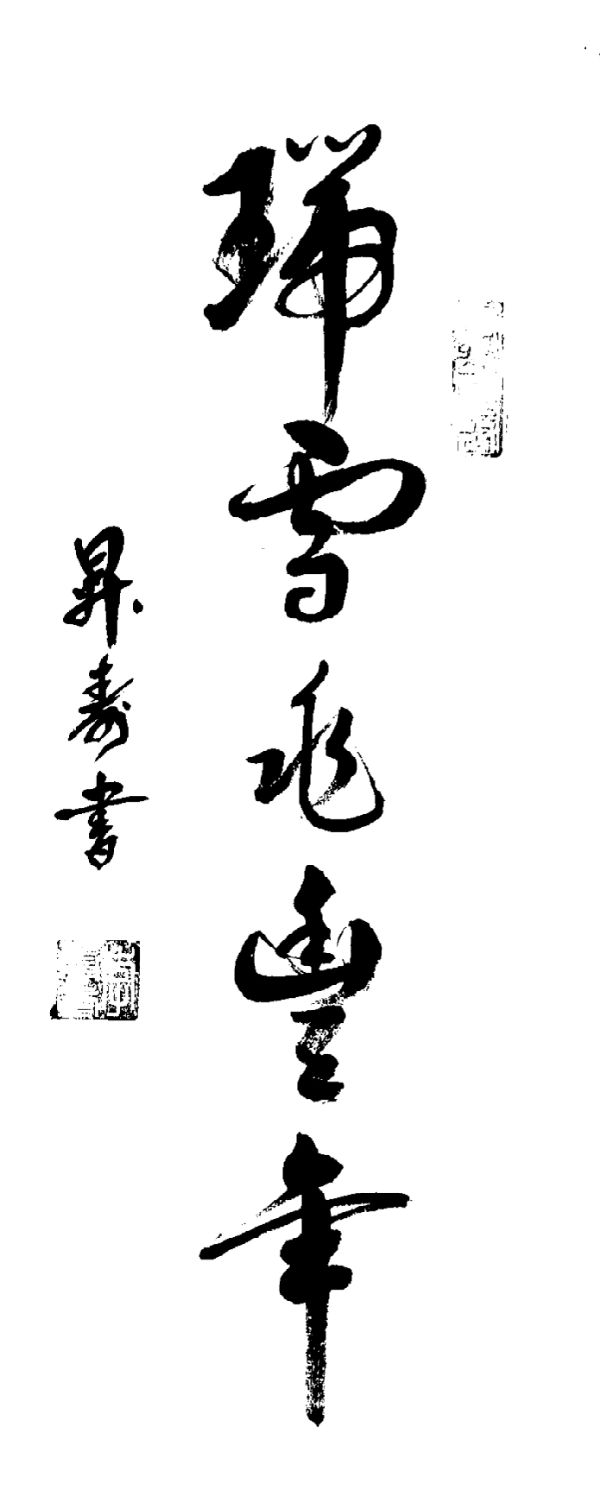 瑞雪兆豐年
昇壽書